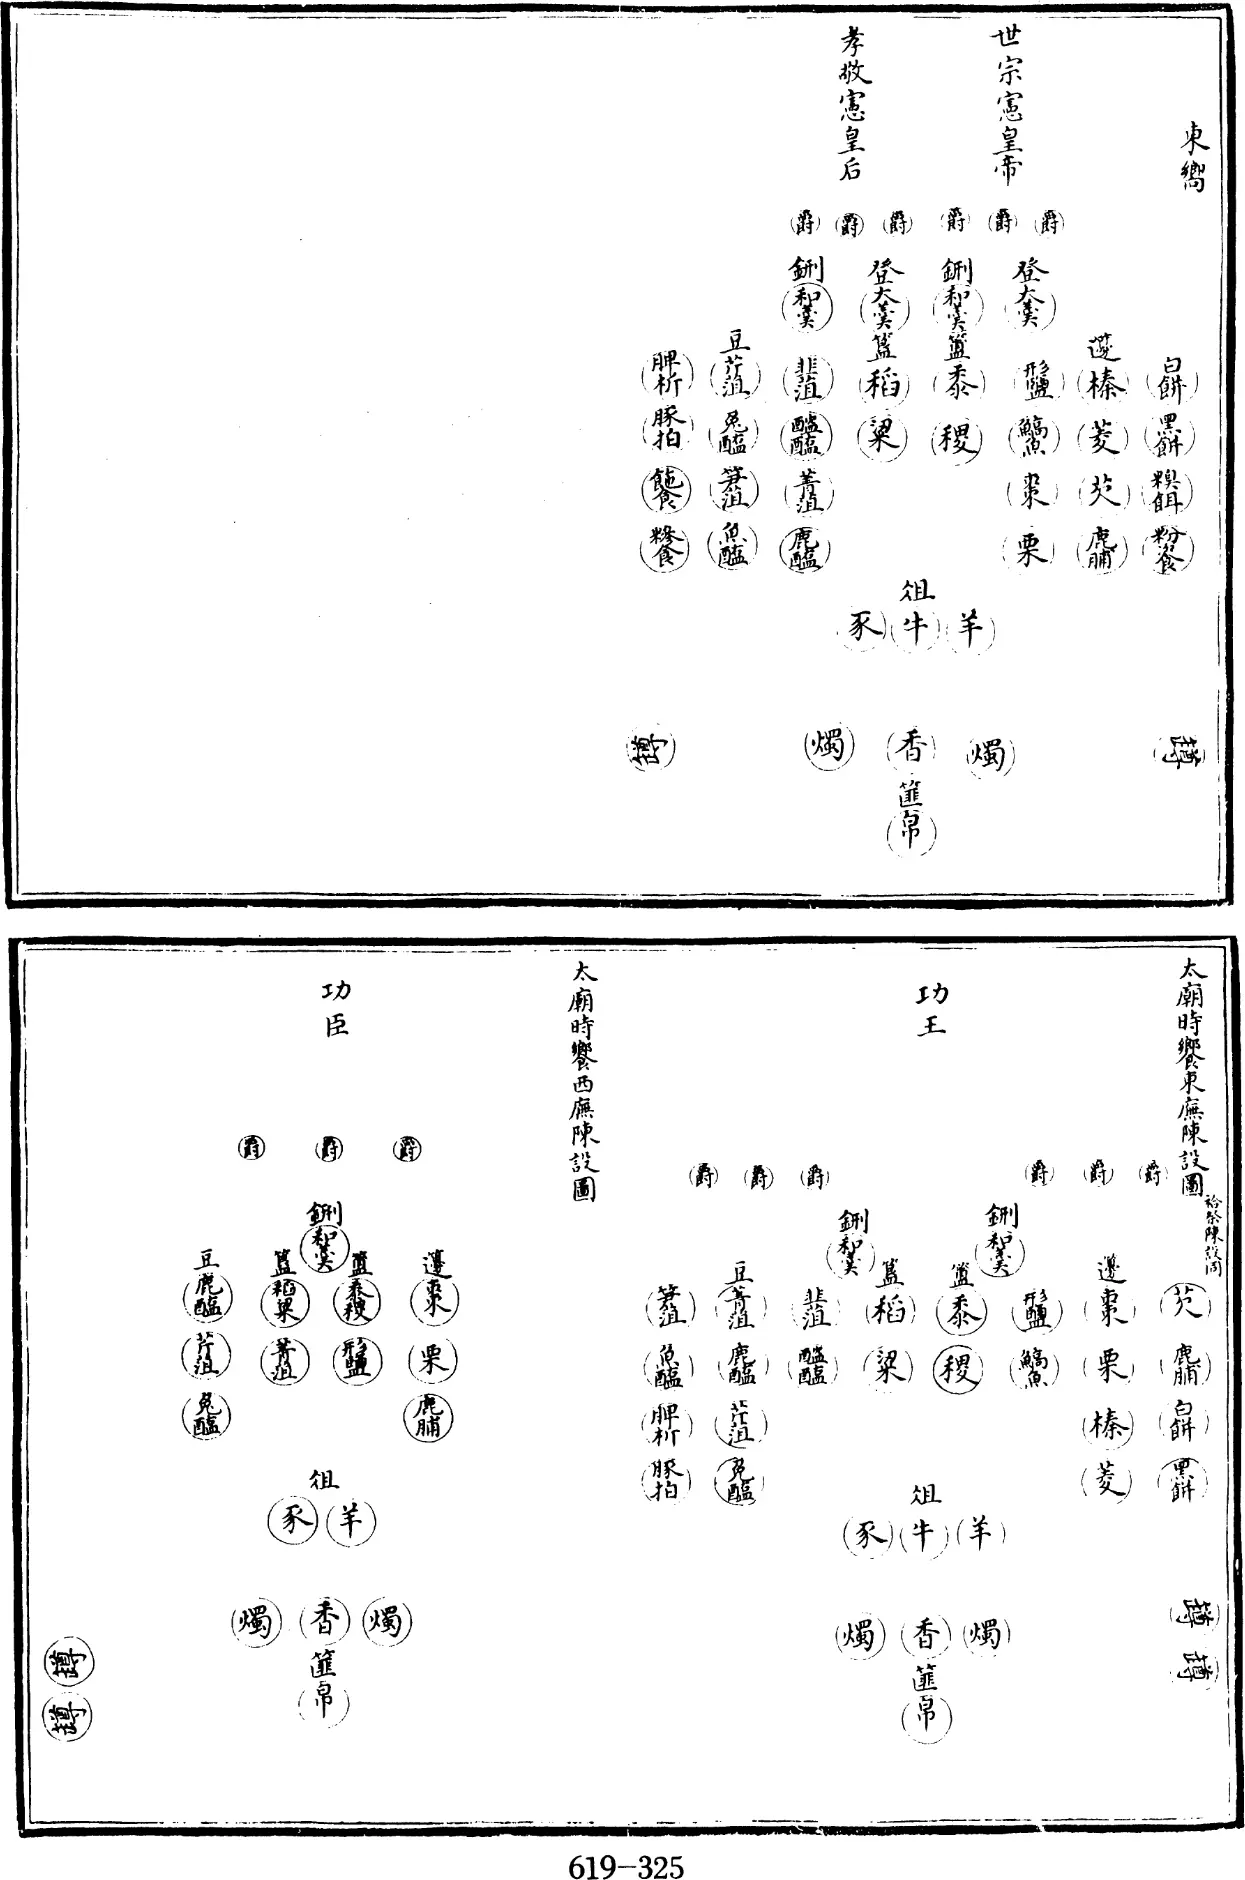 東嚮
世宗憲皇帝
孝敬憲皇后
爵 爵 爵 爵 爵 爵
登 鉶 登 鉶
大羮 和羮 大羮 和羮
籩 簠 簋 豆
白餅 榛 形鹽 黍 稻 韭菹 芹菹 脾析
黑餅 菱 鱐魚 稷 粱 醓醢 兔醢 豚拍
糗餌 芡 棗 菁菹 筍菹 飽食
粉餈 鹿脯 栗 鹿醢 魚醢 糝食
俎
羊 牛 豕
罇 燭 香 燭 罇
篚
帛
太廟時饗東廡陳設圖
祫祭陳設同
功王
爵 爵 爵 爵 爵 爵
鉶 鉶
和羮 和羮
籩 簠 簋 豆
芡 棗 形鹽 黍 稻 韭菹 菁菹 筍菹
鹿脯 栗 鱐魚 稷 粱 醓醢 鹿醢 魚醢
白餅 榛 芹菹 脾析
黑餅 菱 兔醢 豚拍
俎
羊 牛 豕
燭 香 燭
罇
罇
篚
帛
太廟時饗西廡陳設圖
功臣
爵 爵 爵
鉶
和羮
籩 簠 簋 豆
棗 黍稷 稻粱 鹿醢
栗 形鹽 菁菹 芹菹
鹿脯 兔醢
俎
羊 豕
燭 香 燭
篚
帛
罇
罇
619-325